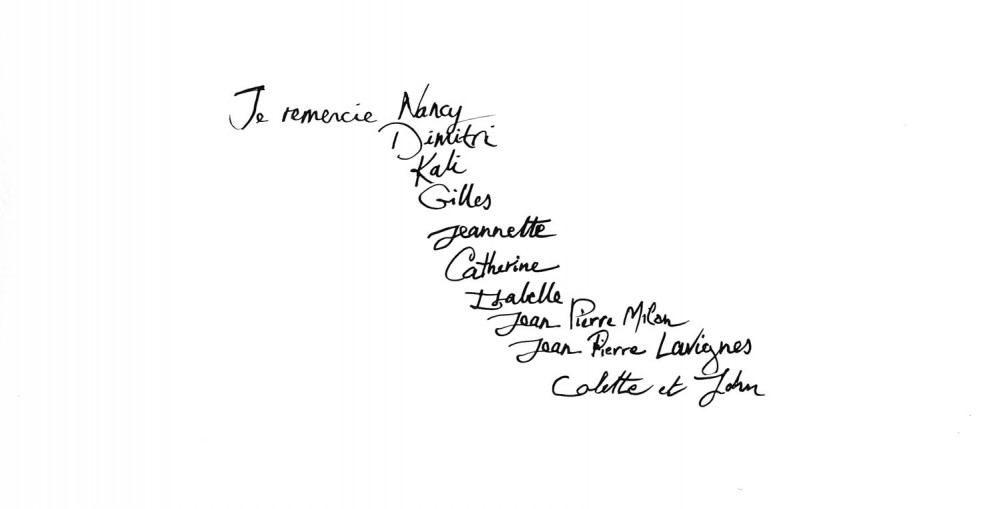 Je remercie Nancy
Dimitri
Kali
Gilles
Jeannette
Catherine
Isabelle
Jean Pierre Milan
Jean Pierre Lavignes
Colette et John